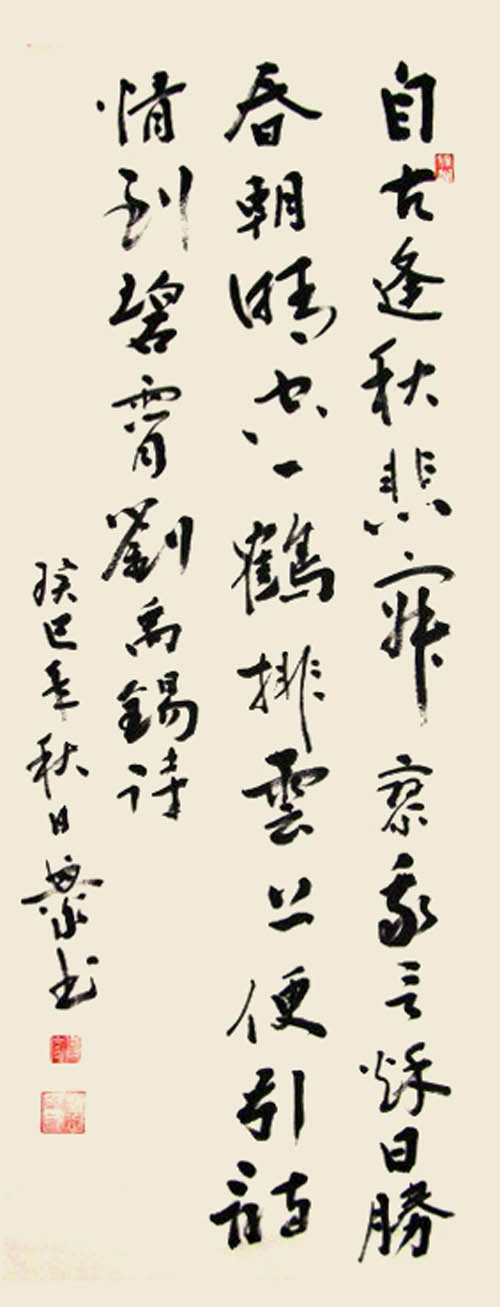 自古逢秋悲寂寥我言秋日勝
春朝晴空一鶴排雲上便引詩
情到碧霄劉禹錫诗
癸巳年秋日书